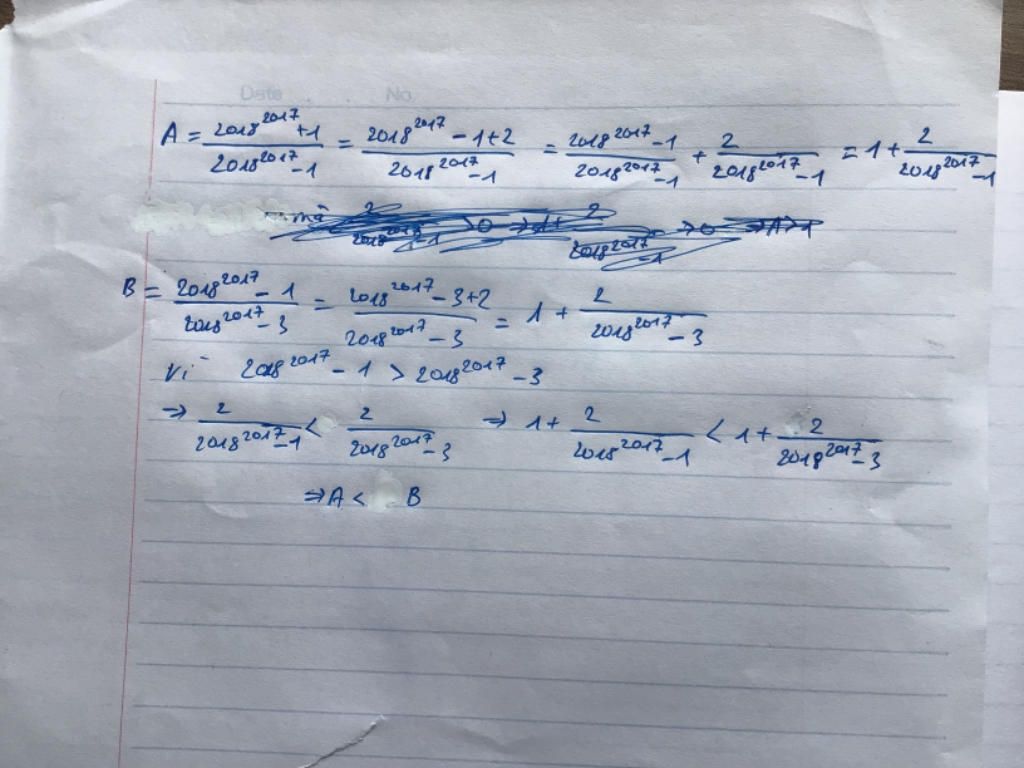 Date No
A = \frac{2018^{2017}+1}{2018^{2017}-1} = \frac{2018^{2017}-1+2}{2018^{2017}-1} = \frac{2018^{2017}-1}{2018^{2017}-1} + \frac{2}{2018^{2017}-1} = 1 + \frac{2}{2018^{2017}-1}
mà
B = \frac{2018^{2017}-1}{2018^{2017}-3} = \frac{2018^{2017}-3+2}{2018^{2017}-3} = 1 + \frac{2}{2018^{2017}-3}
Vì 2018^{2017} - 1 > 2018^{2017} - 3
⇒ \frac{2}{2018^{2017}-1} < \frac{2}{2018^{2017}-3} ⇒ 1 + \frac{2}{2018^{2017}-1} < 1 + \frac{2}{2018^{2017}-3}
⇒ A < B